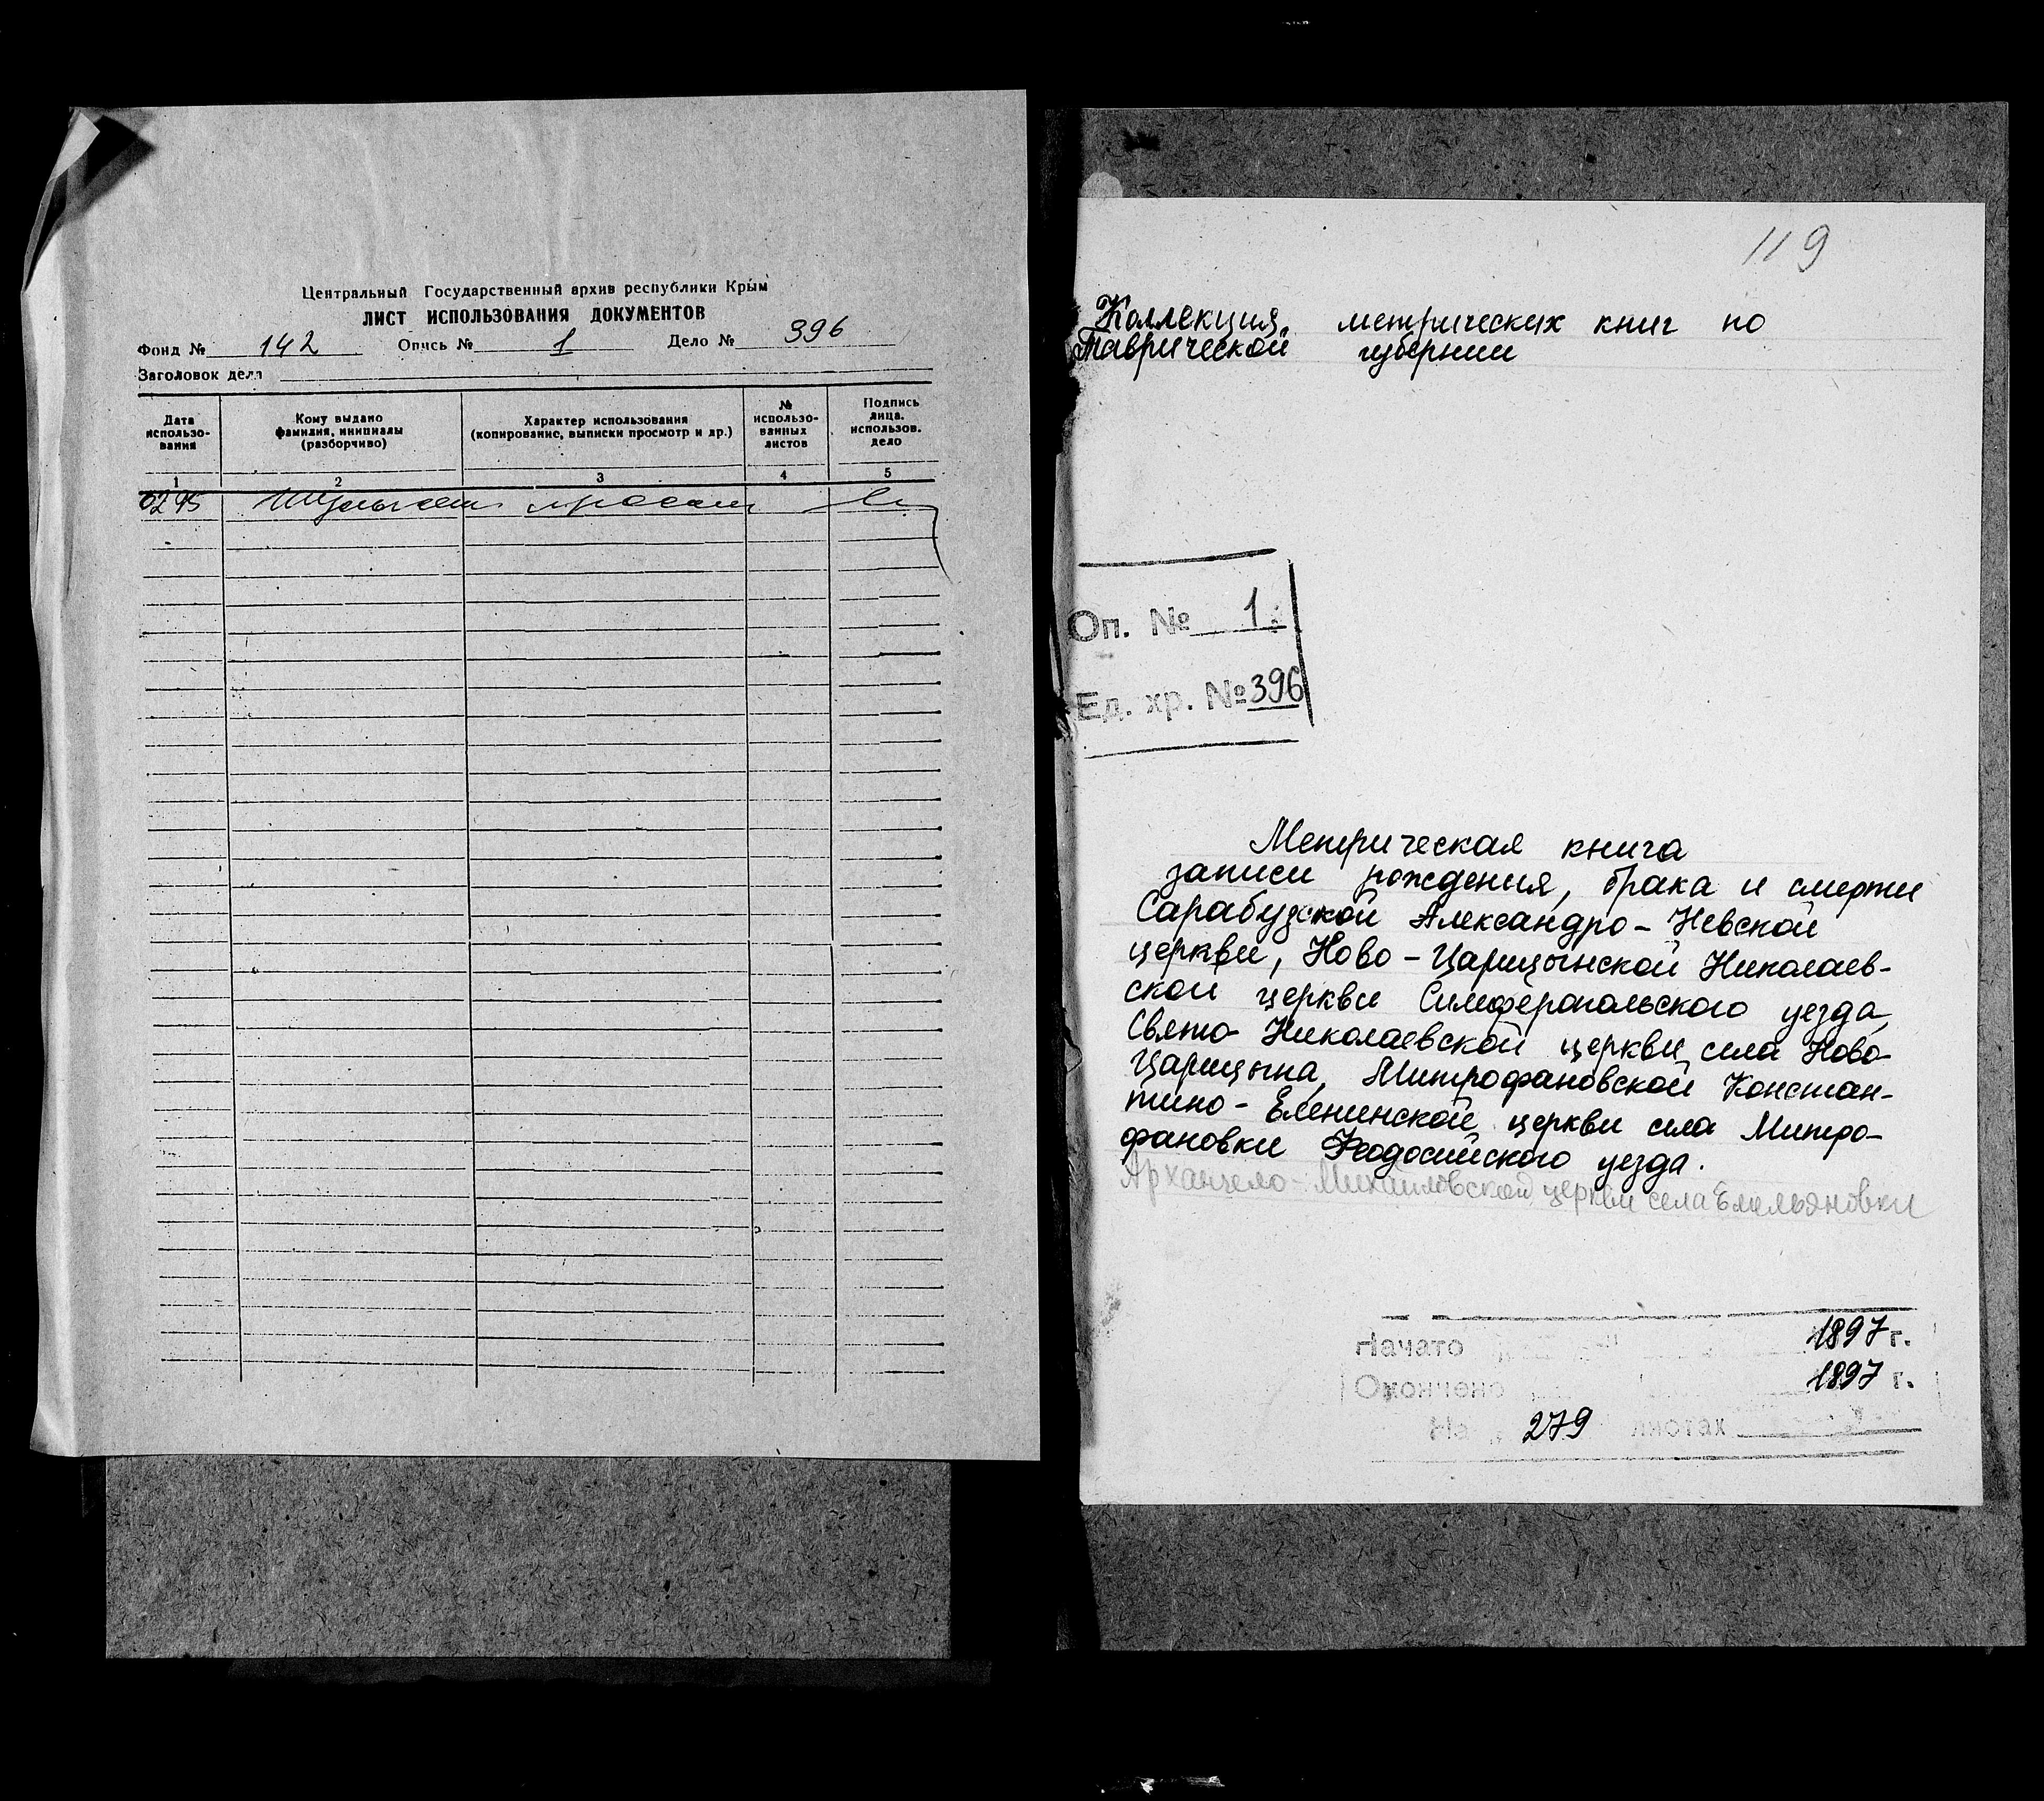 Центральный Государственный архив республики Крым
ЛИСТ ИСПОЛЬЗОВАНИЯ ДОКУМЕНТОВ
Фонд № 142 Опись № 1 Дело № 396
Заголовок дела
Дата использо-вания
Кому выдано фамилия, инициалы (разборчиво)
Характер использования (копирование, выписки просмотр и др.)
№ использо-ванных листов
Подпись лица. использов. дело
1 2 3 4 5
0295
119
Коллекция метрических книг по
Таврической губернии
Оп. № 1
Ед. хр. № 396
Метрическая книга
записи рождения, брака и смерти
Сарабузской Александро-Невской
церкви, Ново-Царицынской Николаев-
ской церкви Симферопольского уезда,
Свято Николаевской церкви села Ново-
Царицына, Митрофановской Констан-
тино-Еленинской церкви села Митро-
фановки Феодосийского уезда.
Архангело-Михайловской церкви села Емельяновки
Начато 1897 г.
Окончено 1897 г.
На 279 листах